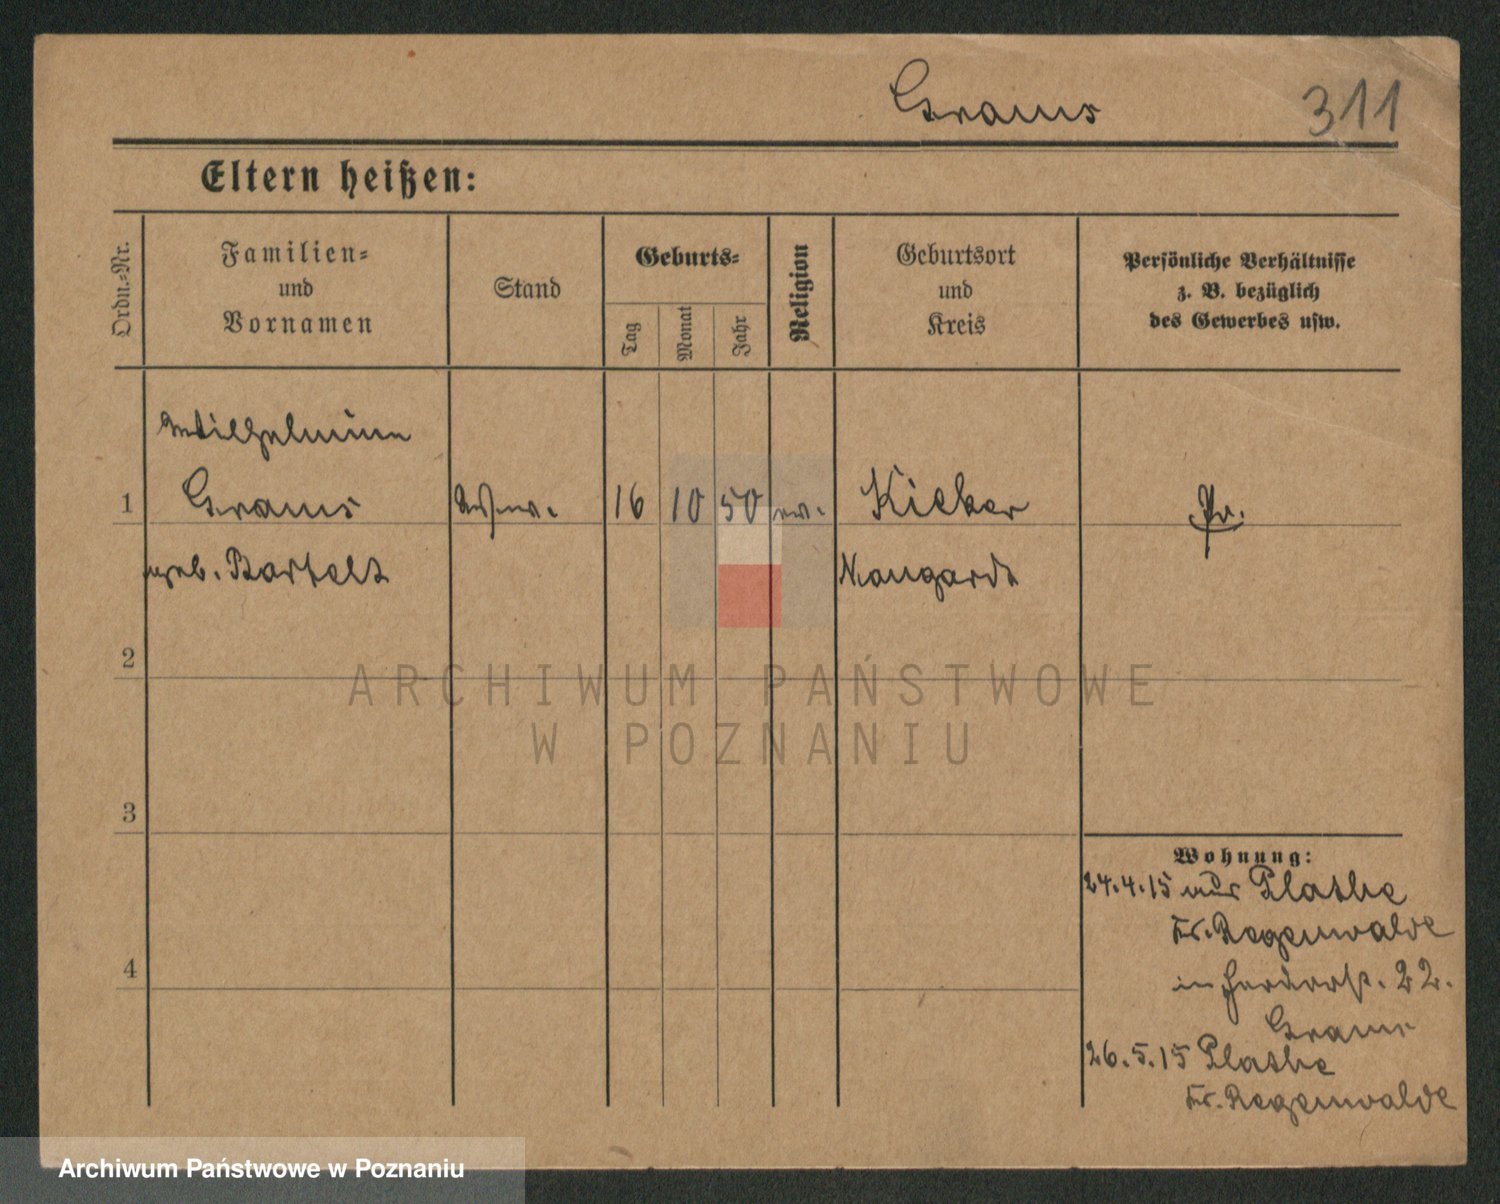 Grams 311
Eltern heißen:
Ordn.-Nr.
Familien-
und
Vornamen
Stand
Geburts-
Tag
Monat
Jahr
Religion
Geburtsort
und
Kreis
Persönliche Verhältnisse
z. B. bezüglich
des Gewerbes usw.
Wilhelmine
1 Grams Ww. 16 10 50 ev. Kieker Pr.
geb. Bartelt Naugard
2
ARCHIWUM PAŃSTWOWE
W POZNANIU
3
Wohnung:
24.4.15 aus Plathe
Kr. Regenwalde
4 in Herderstr. 22.
Grams
26.5.15 Plathe
Kr. Regenwalde
Archiwum Państwowe w Poznaniu